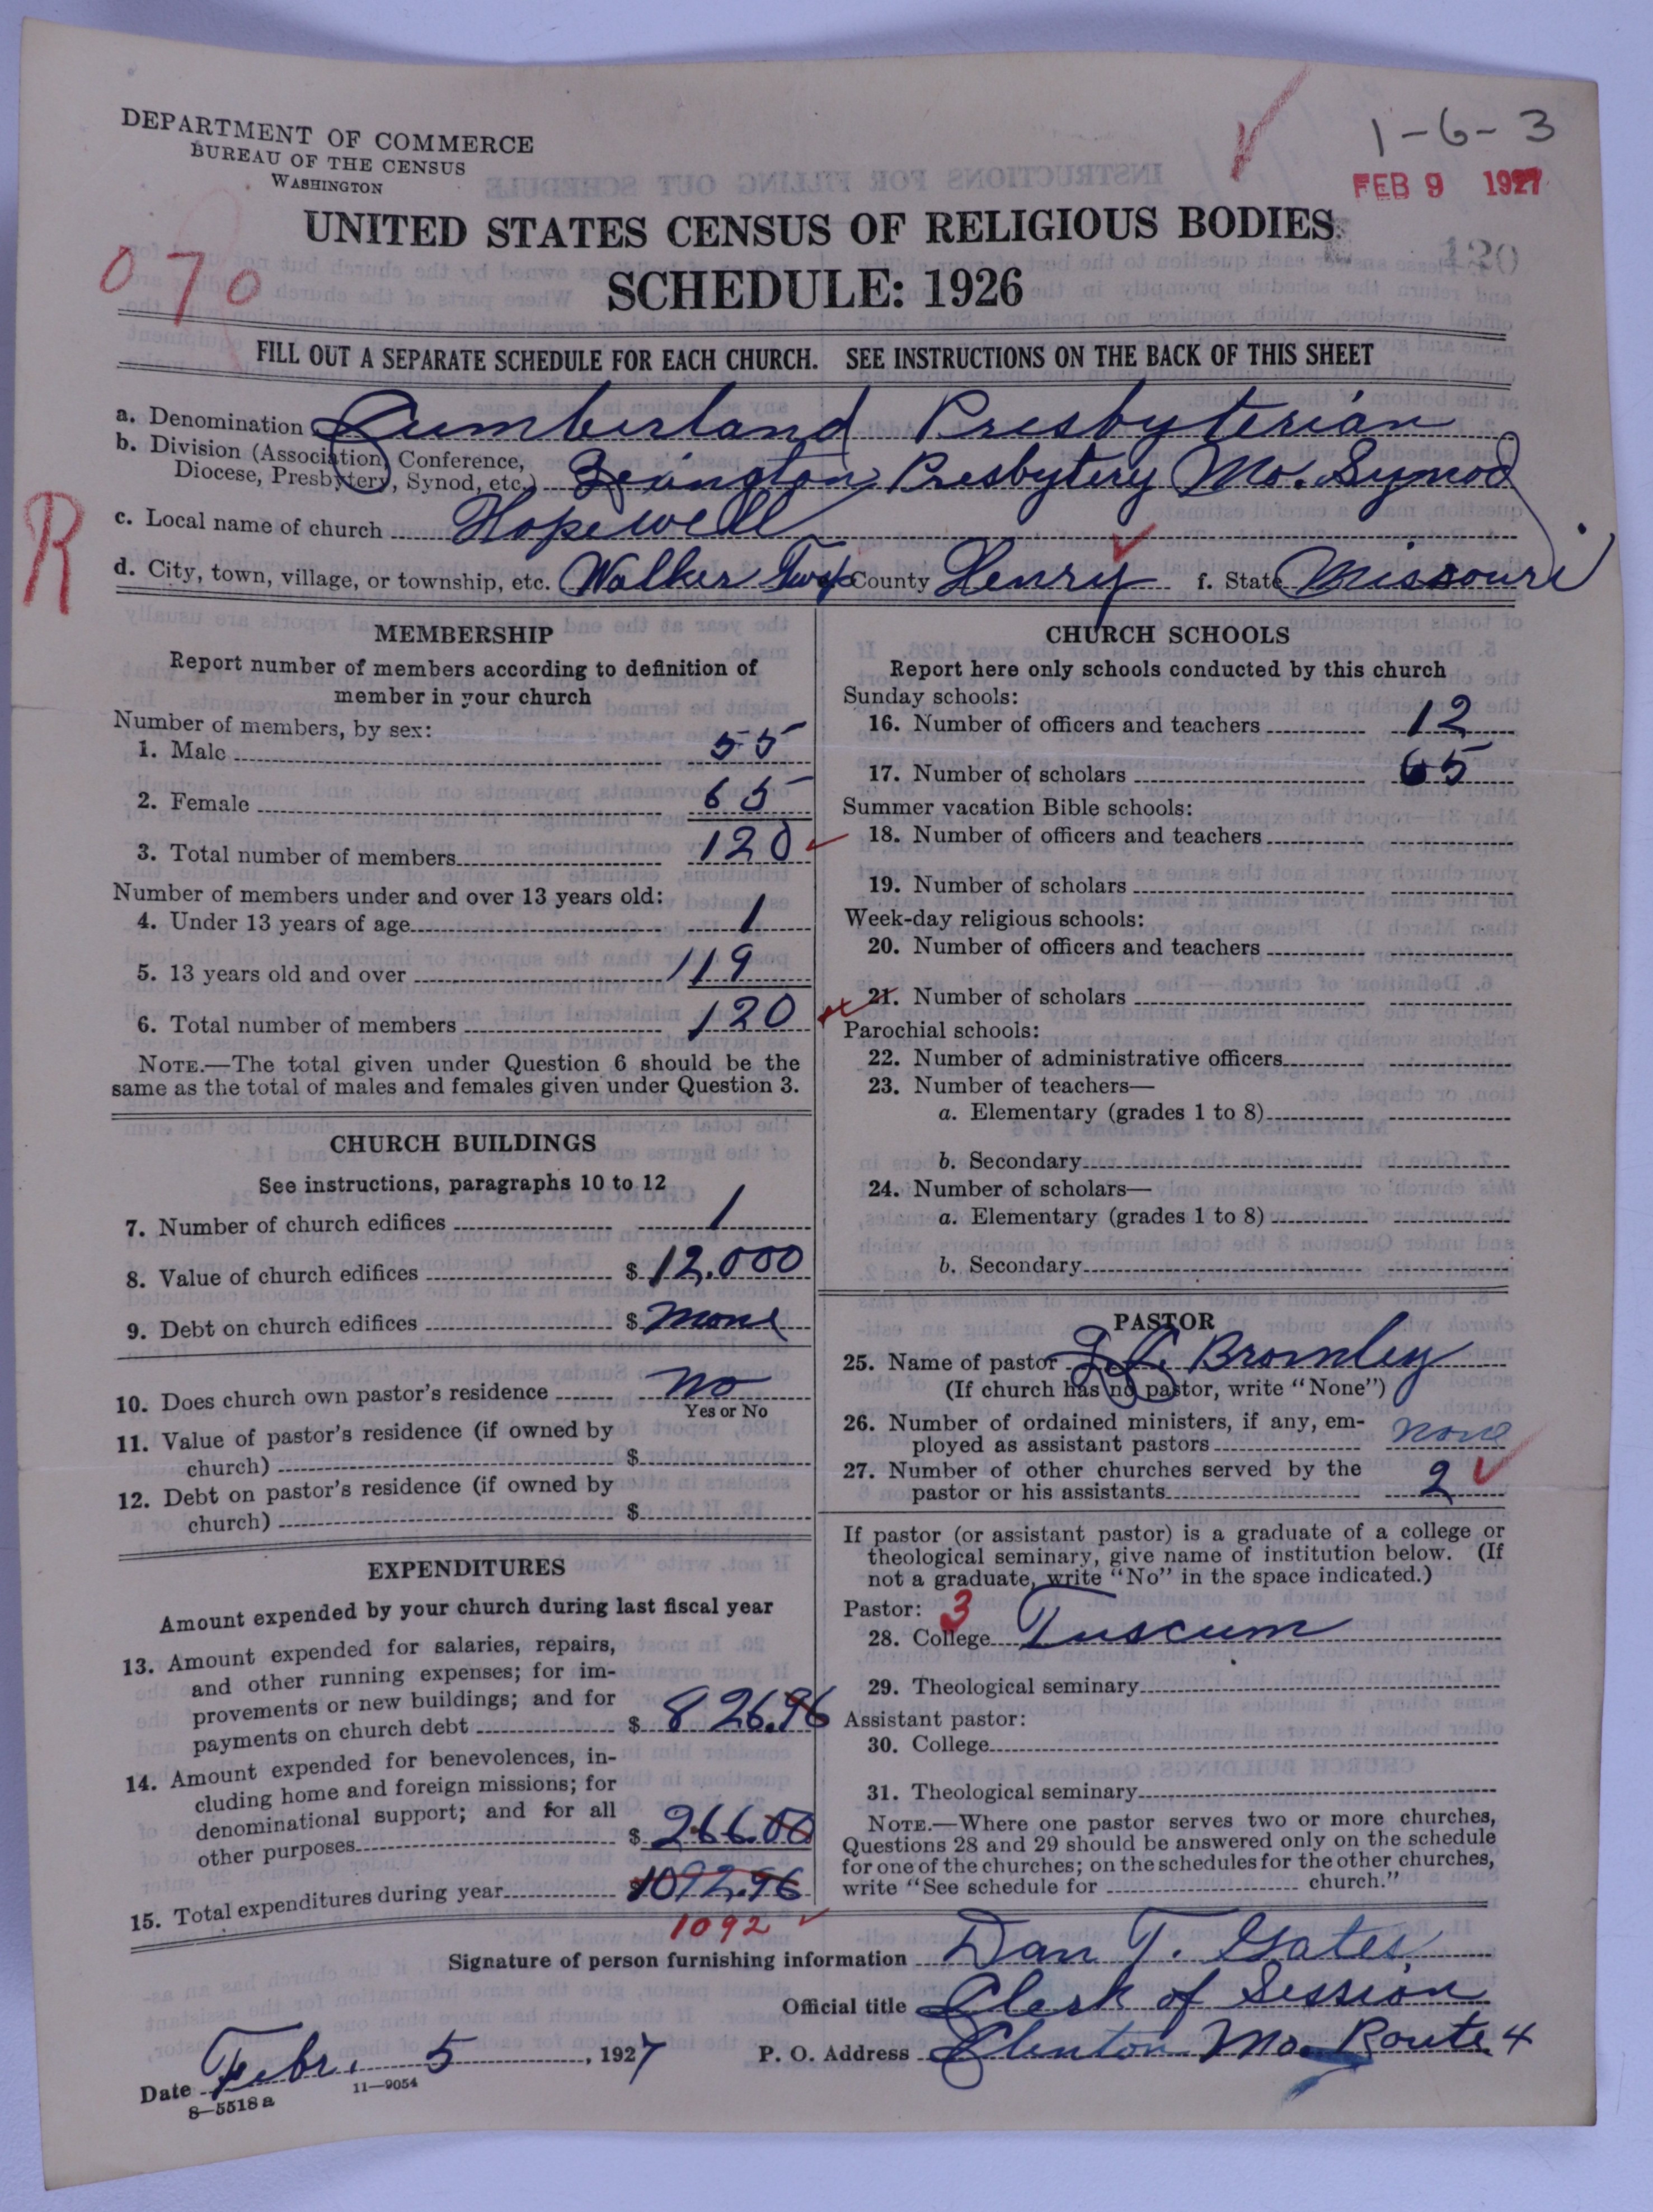 DEPARTMENT OF COMMERCE
BUREAU OF THE CENSUS
WASHINGTON
1-6-3
FEB 9 1927
UNITED STATES CENSUS OF RELIGIOUS BODIES
120
070
SCHEDULE: 1926
FILL OUT A SEPARATE SCHEDULE FOR EACH CHURCH. SEE INSTRUCTIONS ON THE BACK OF THIS SHEET
a. Denomination Cumberland Presbyterian
b. Division (Association, Conference,
Diocese, Presbytery, Synod, etc.) Lexington Presbytery Mo. Synod
R
c. Local name of church Hopewell
d. City, town, village, or township, etc. Walker Twp County Henry f. State Missouri
MEMBERSHIP
Report number of members according to definition of
member in your church
Number of members, by sex:
1. Male 55
2. Female 65
3. Total number of members 120
Number of members under and over 13 years old:
4. Under 13 years of age 1
5. 13 years old and over 119
6. Total number of members 120
NOTE.—The total given under Question 6 should be the
same as the total of males and females given under Question 3.
CHURCH BUILDINGS
See instructions, paragraphs 10 to 12
7. Number of church edifices 1
8. Value of church edifices $12,000
9. Debt on church edifices $none
10. Does church own pastor's residence no
Yes or No
11. Value of pastor's residence (if owned by
church) $
12. Debt on pastor's residence (if owned by
church) $
EXPENDITURES
Amount expended by your church during last fiscal year
13. Amount expended for salaries, repairs,
and other running expenses; for im-
provements or new buildings; and for
payments on church debt $ 826.96
14. Amount expended for benevolences, in-
cluding home and foreign missions; for
denominational support; and for all
other purposes $ 266.00
15. Total expenditures during year $1092.96
1092
CHURCH SCHOOLS
Report here only schools conducted by this church
Sunday schools:
16. Number of officers and teachers 12
17. Number of scholars 65
Summer vacation Bible schools:
18. Number of officers and teachers
19. Number of scholars
Week-day religious schools:
20. Number of officers and teachers
21. Number of scholars
Parochial schools:
22. Number of administrative officers
23. Number of teachers—
a. Elementary (grades 1 to 8)
b. Secondary
24. Number of scholars—
a. Elementary (grades 1 to 8)
b. Secondary
PASTOR
25. Name of pastor Bromley
(If church has no pastor, write "None")
26. Number of ordained ministers, if any, em-
ployed as assistant pastors none
27. Number of other churches served by the
pastor or his assistants 2
If pastor (or assistant pastor) is a graduate of a college or
theological seminary, give name of institution below. (If
not a graduate, write "No" in the space indicated.)
Pastor: 3
28. College Tuscum
29. Theological seminary
Assistant pastor:
30. College
31. Theological seminary
NOTE.—Where one pastor serves two or more churches,
Questions 28 and 29 should be answered only on the schedule
for one of the churches; on the schedules for the other churches,
write "See schedule for church."
Signature of person furnishing information Dan T. Gates,
Official title Clerk of Session
P. O. Address Clinton Mo. Route 4
Date Febr. 5, 1927
8—5518a 11—9054